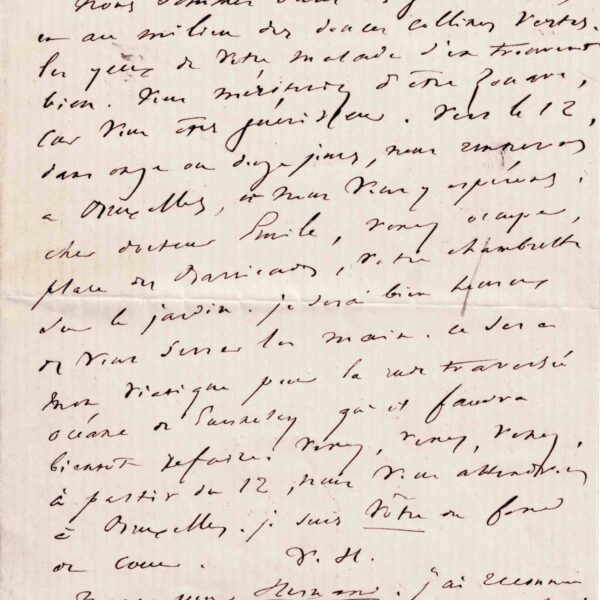 Nous sommes dans
et au milieu des douces collines vertes.
les yeux de votre malade s'en trouvent
bien. Vous mériteriez d'être Zouave,
car vous êtes guérisseur. Vers le 12,
dans onze ou douze jours, nous rentrerons
à Bruxelles, et nous vous y espérons.
cher docteur Émile, venez occuper,
place des Barricades, votre chambrette
sur le jardin. je serai bien heureux
de vous serrer les mains. ce sera
mon viatique pour la rude traversée
océane de Guernesey qu'il faudra
bientôt refaire. venez, venez, venez,
à partir du 12, nous vous attendrons
à Bruxelles. je suis Vôtre du fond
du cœur. V. H.
Hernani. j'ai reconnu